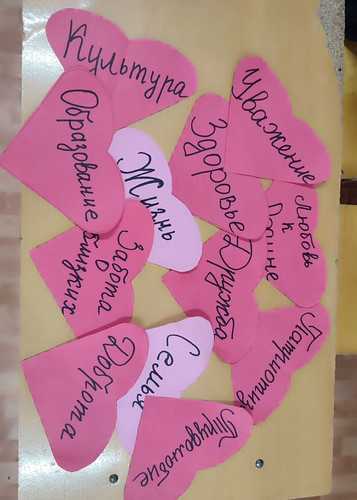 Культура
Образование
Уважение
Здоровье
Жизнь
Любовь
к
Забота
о
близких
Дружба
Патриотизм
Семья
Доброта
Трудолюбие